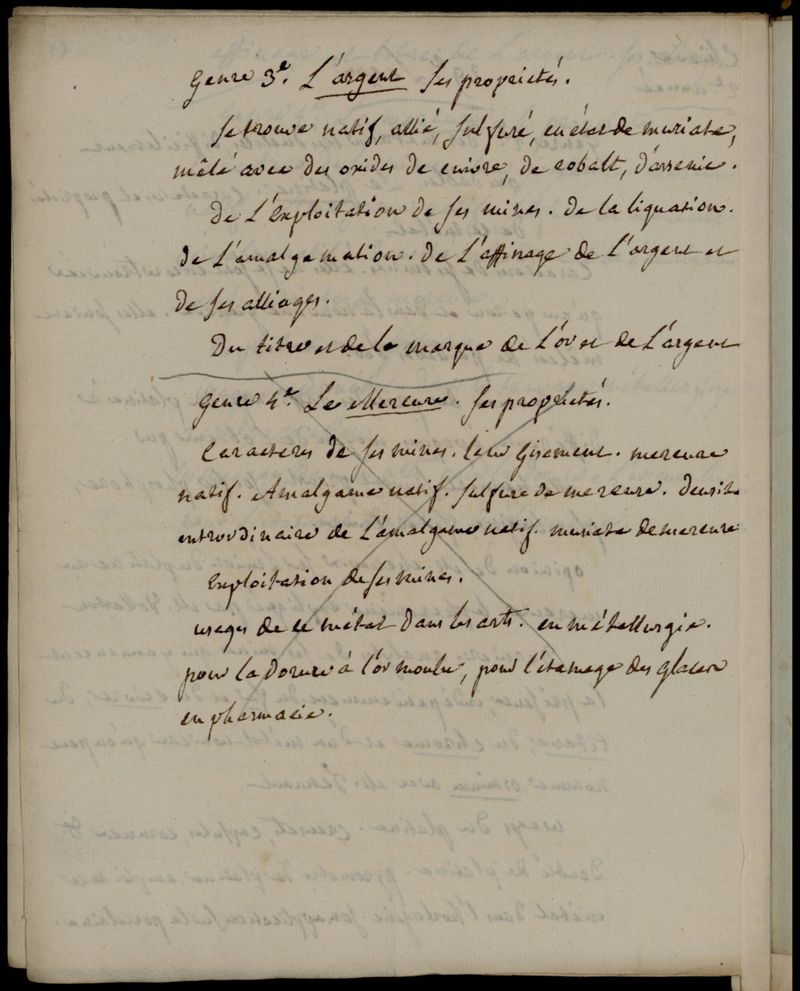 Genre 3e. L'argent ses proprietés.
se trouve natif, allié, sulfuré, en état de muriate,
mêlé avec des oxides de cuivre, de cobalt, d'arsenic.
De L'Exploitation de ses mines. De la liquation.
de L'amalgamation. de L'affinage de L'argent et
de ses alliages.
Du titre et de la marque de L'or et de L'argent
Genre 4e. Le Mercure. ses proprietés.
Caracteres de ses mines. leur Gisement. mercure
natif. Amalgame natif. sulfure de mercure. densité
extrordinaire de L'amalgame natif. muriate de mercure
Exploitation de ses mines.
usages de ce métal dans les arts. en métallurgie.
pour la Dorure à l'or moulu, pour l'étamage des glaces
en pharmacie.